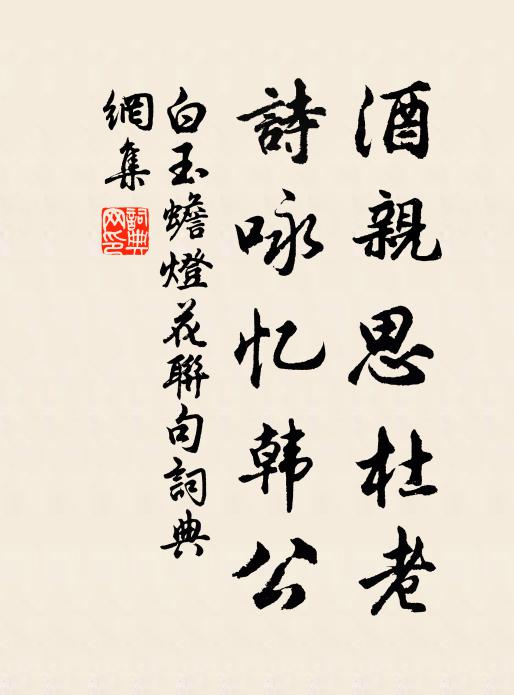 酒親思杜老
詩咏忆韩公
白玉蟾燈花聯句詞典
網集
詞典网印